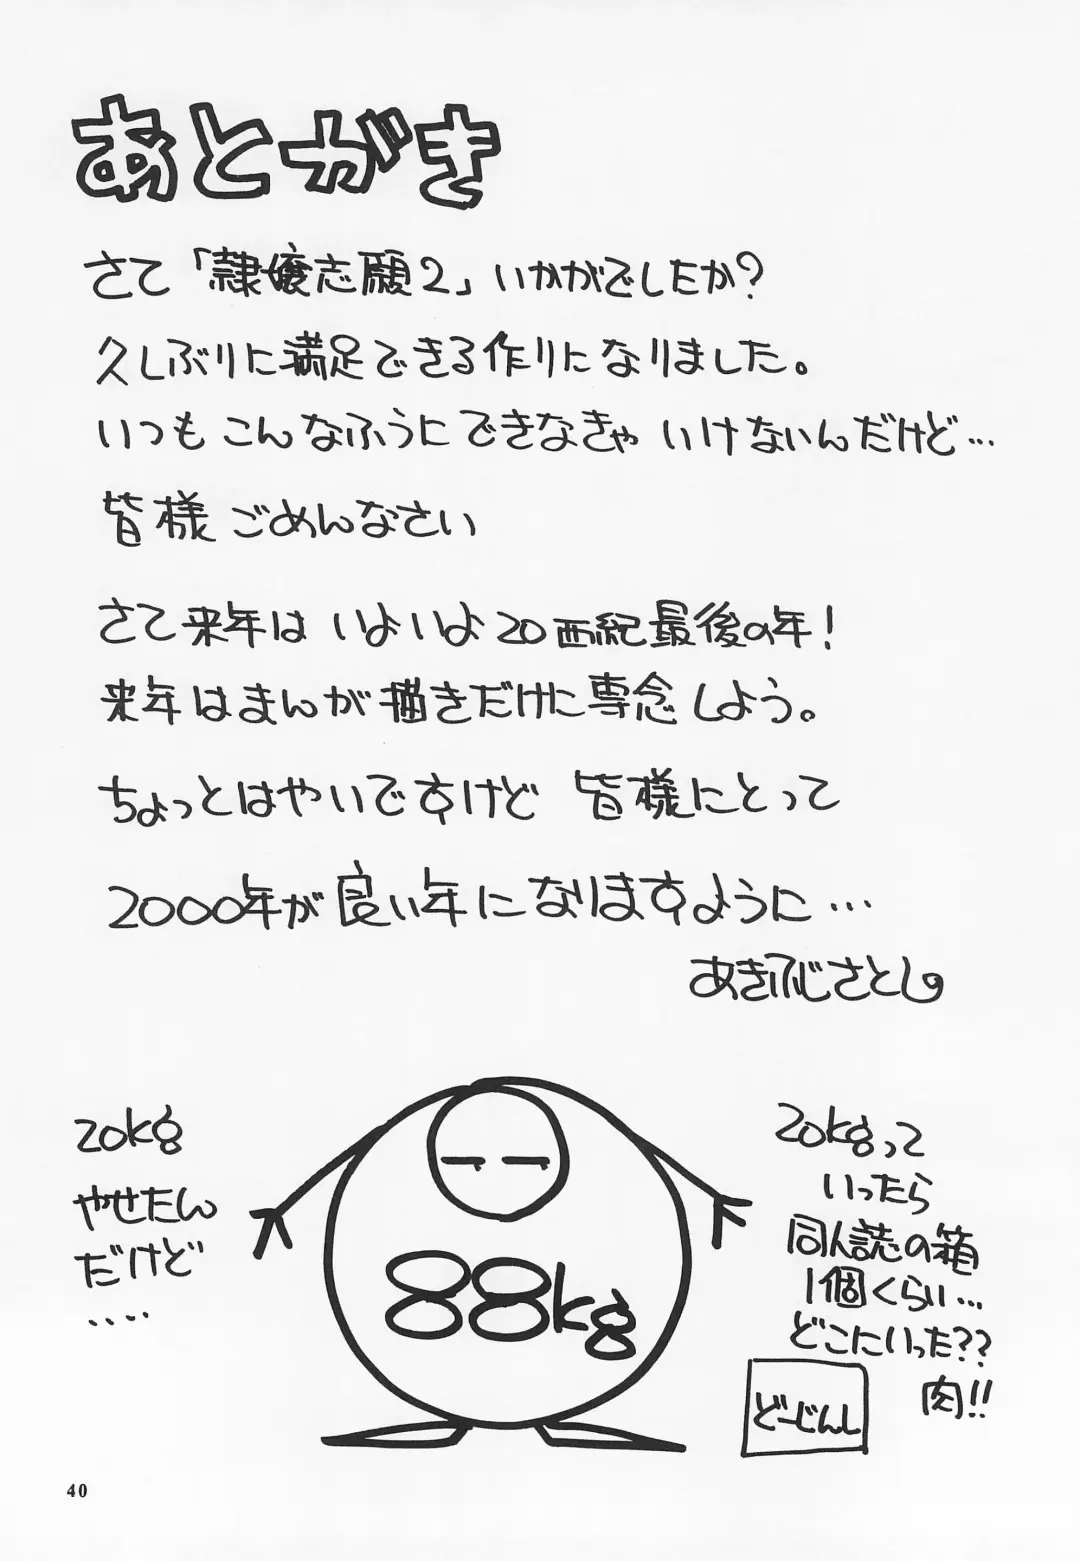 あとがき
さて「隷嬢志願2」いかがでしたか?
久しぶりに満足できる作りになりました。
いつも こんなふうにできなきゃ いけないんだけど…
皆様 ごめんなさい
さて来年は いよいよ20西紀最後の年!
来年はまんが描きだけに専念しよう。
ちょっとはやいですけど 皆様にとって
2000年が良い年になりますように…
あきふじさとし
20kg
やせたん
だけど
‥‥
88kg
20kgって
いったら
同人読の箱
1個くらい…
どこにいった??
肉!!
どーじんし
40